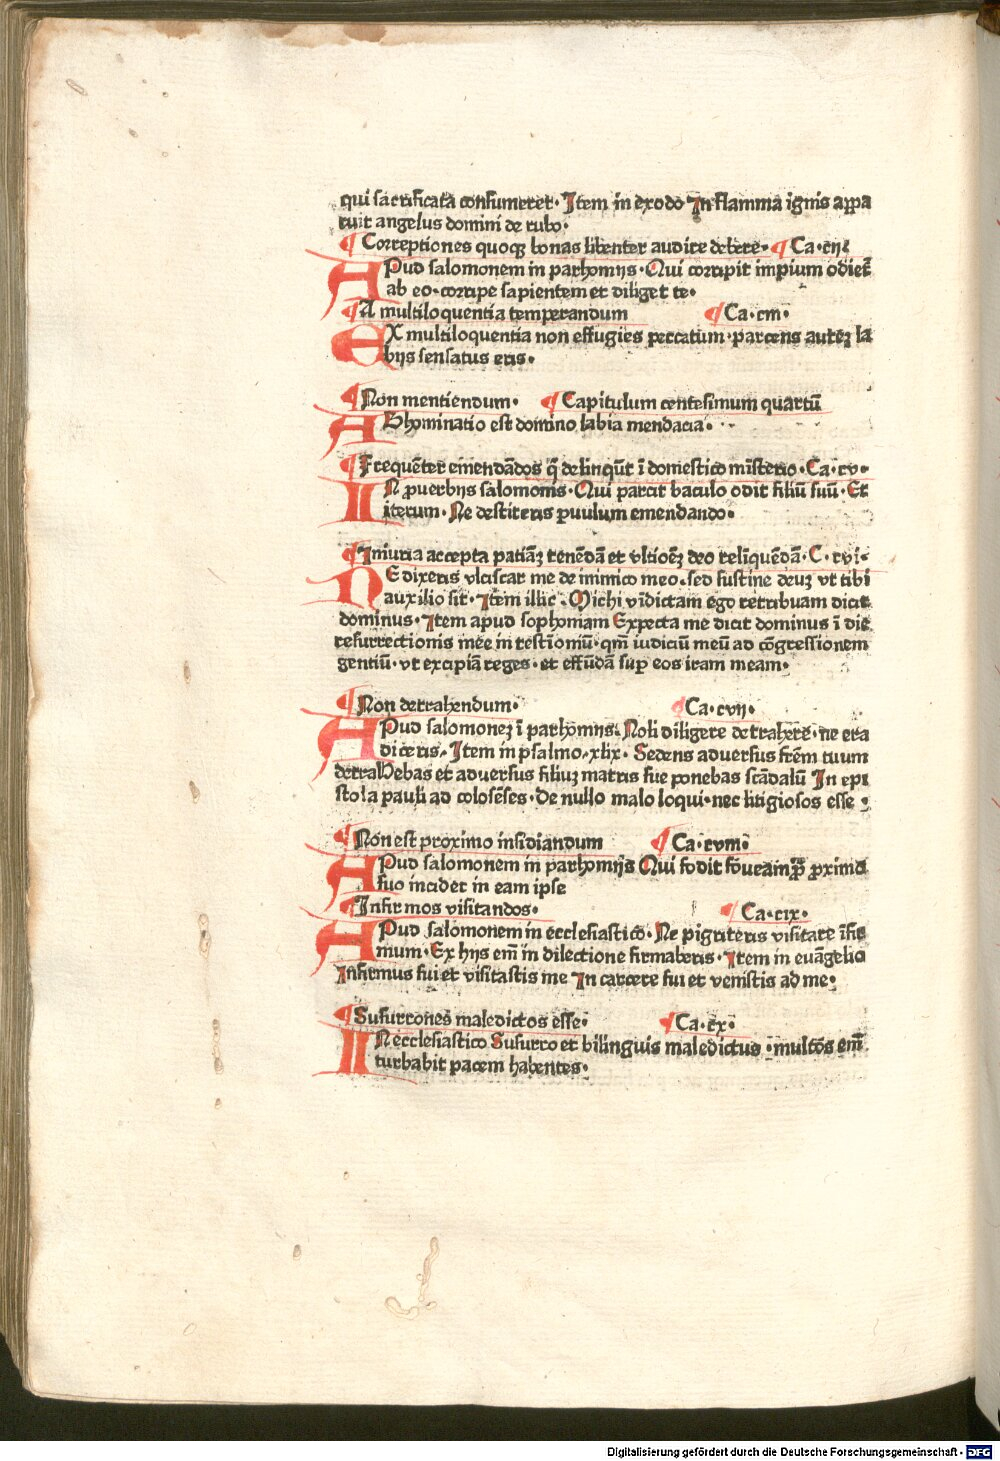 qui sacrificata consumeret· Item in exodo In flamma ignis appa
ruit angelus domini de rubo·
¶ Correptiones quoqꝫ bonas libenter audire debere· ¶ Ca·cij
APud salomonem in parhomijs· Qui corripit impium odiet̃
ab eo·corripe sapientem et diliget te·
¶ A multiloquentia temperandum ¶ Ca·ciii·
EX multiloquentia non effugies peccatum·parcens auteꝫ la
bijs sensatus eris·
¶ Non mentiendum· ¶ Capitulum centesimum quartũ
ABhominatio est domino labia mendacia·
¶ Frequẽter emendãdos q̃ delinqũt ĩ domestico mĩsterio·Ca·cv·
IN ꝓuerbijs salomonis·Qui parcit baculo odit filiũ suũ·Et
iterum·Ne destiteris paruulum emendando·
¶ Iniuria accepta patiãꝫ tenẽdã et vltiõeꝫ deo relĩquẽdã·C·cvi·
NE dixeris vlciscar me de inimico meo·sed sustine deuꝫ vt tibi
auxilio sit· Itẽm illic·Michi vĩdictam ego retribuam dicit
dominus·Item apud sophoniam Expecta me dicit dominus ĩ die
resurrectionis mee in testĩomũ·qm̃ iudiciũ meũ ad cõgressionem
gentiũ·vt excipiã reges·et effũdã sup̃ eos iram meam·
¶ Non detrahendum· ¶ Ca·cvij·
APud salomoneꝫ ĩ parhomijs. Noli diligere detrahere·ne era
diceris·Item in psalmo·xlix· Sedens aduersus frẽm tuum
detraHebas et aduersus filiuꝫ matris sue ponebas scãdalũ In epi
stola pauli ad colosẽses·De nullo malo loqui·nec litigiosos esse·
¶ Non est proximo insidiandum ¶ Ca·cviii·
APud salomonem in parhomijs Qui fodit foueam ꝓximo
suo incidet in eam ipse
¶ Infirmos visitandos· ¶ Ca·cix·
APud salomonem in ecclesiastico·Ne pigriteris visitare ĩfir
mum·Ex hijs em̃ in dilectione firmaberis·Item in euãgelio
Infirmus fui et visitastis me In carcere fui et venistis ad me·
¶ Susurrones maledictos esse· ¶ Ca·cx·
IN ecclesiastico Susurro et bilinguis maledictus·multos em̃
turbabit pacem habentes·
Digitalisierung gefördert durch die Deutsche Forschungsgemeinschaft - DFG